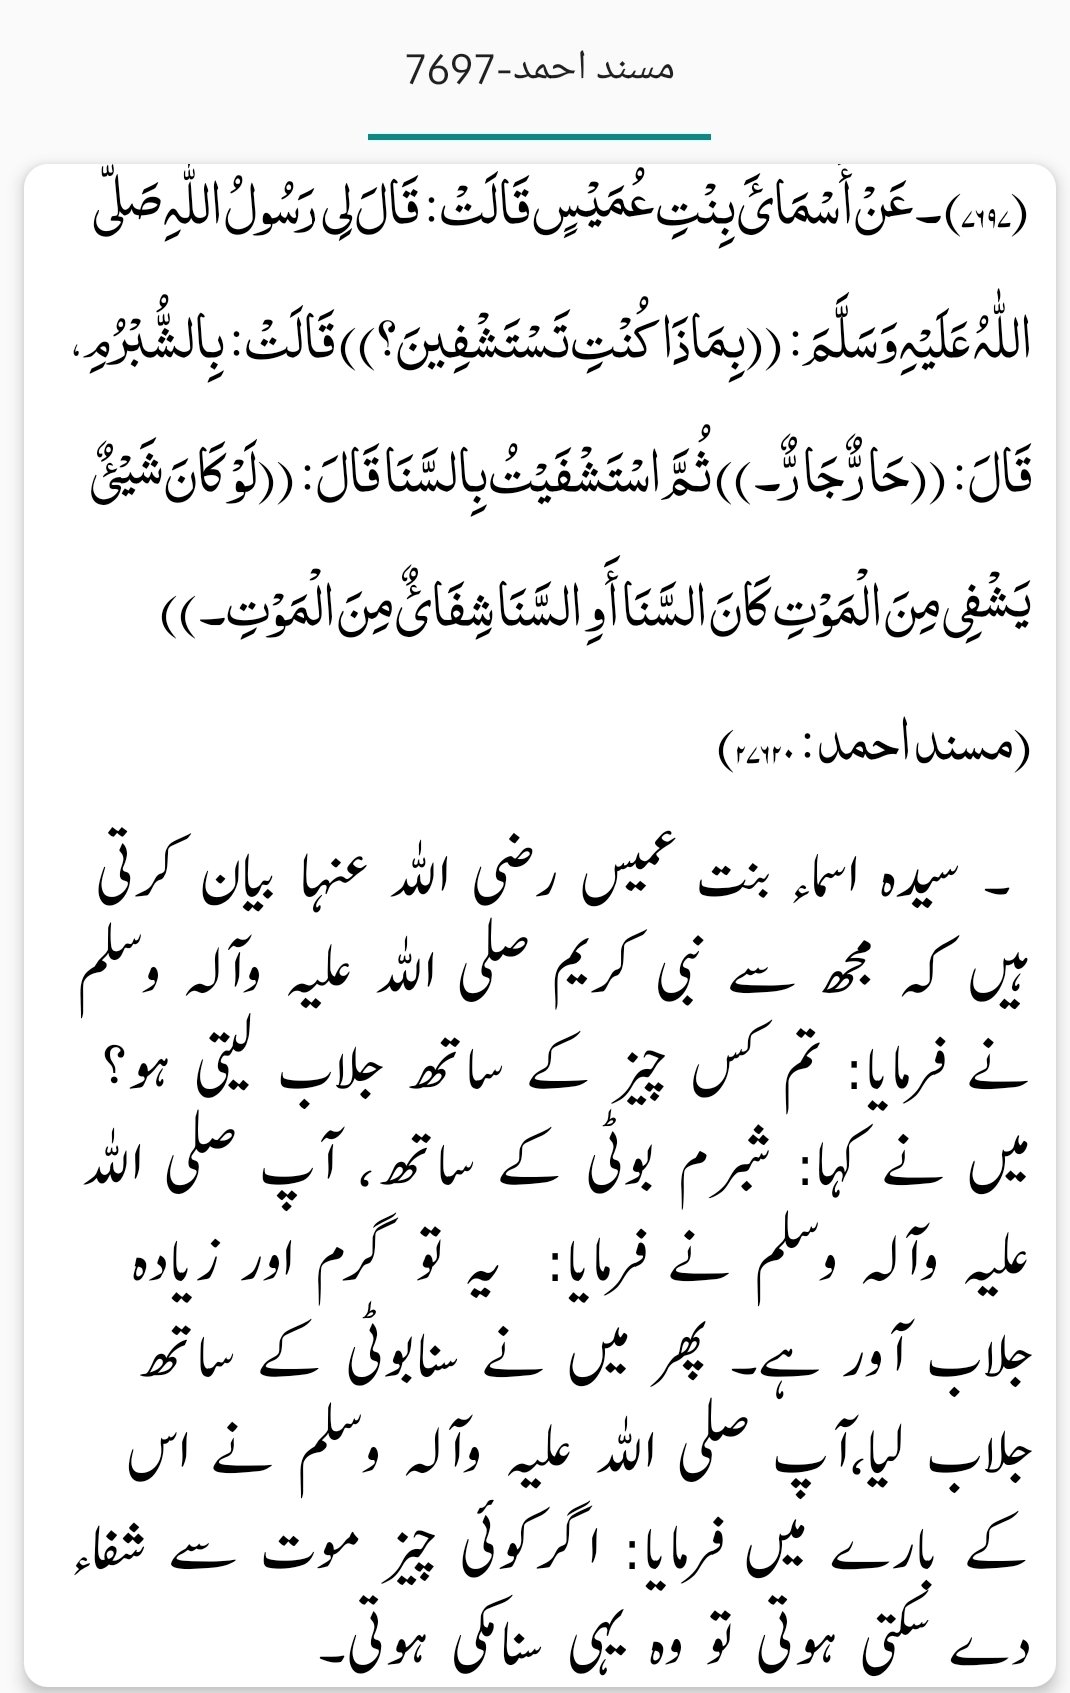 مسند احمد-7697
(۷۶۹۷)۔ عَنْ أَسْمَائَ بِنْتِ عُمَیْسٍ قَالَتْ: قَالَ لِی رَسُولُ اللّٰہِ صَلَّی
اللّٰہُ عَلَیْہِ وَسَلَّمَ: ((بِمَاذَا کُنْتِ تَسْتَشْفِینَ؟)) قَالَتْ: بِالشُّبْرُمِ،
قَالَ: ((حَارٌّ جَارٌّ۔)) ثُمَّ اسْتَشْفَیْتُ بِالسَّنَا قَالَ: ((لَوْ کَانَ شَیْئٌ
یَشْفِی مِنَ الْمَوْتِ کَانَ السَّنَا أَوِ السَّنَا شِفَائٌ مِنَ الْمَوْتِ۔))
(مسند احمد: ۲۷۶۲۰)
۔ سیدہ اسماء بنت عمیس رضی اللہ عنہا بیان کرتی
ہیں کہ مجھ سے نبی کریم صلی اللہ علیہ وآلہ وسلم
نے فرمایا: تم کس چیز کے ساتھ جلاب لیتی ہو؟
میں نے کہا: شبرم بوٹی کے ساتھ، آپ صلی اللہ
علیہ وآلہ وسلم نے فرمایا: یہ تو گرم اور زیادہ
جلاب آور ہے۔ پھر میں نے سنابوٹی کے ساتھ
جلاب لیا،آپ صلی اللہ علیہ وآلہ وسلم نے اس
کے بارے میں فرمایا: اگرکوئی چیز موت سے شفاء
دے سکتی ہوتی تو وہ یہی سنامکی ہوتی۔